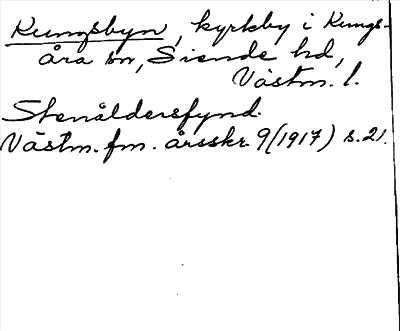 Kungsbyn, kyrkby i Kungs-
åra sn, Siende hd,
Västm. l.
Stenåldersfynd.
Västm. fm. årsskr. 9 (1917) s. 21.